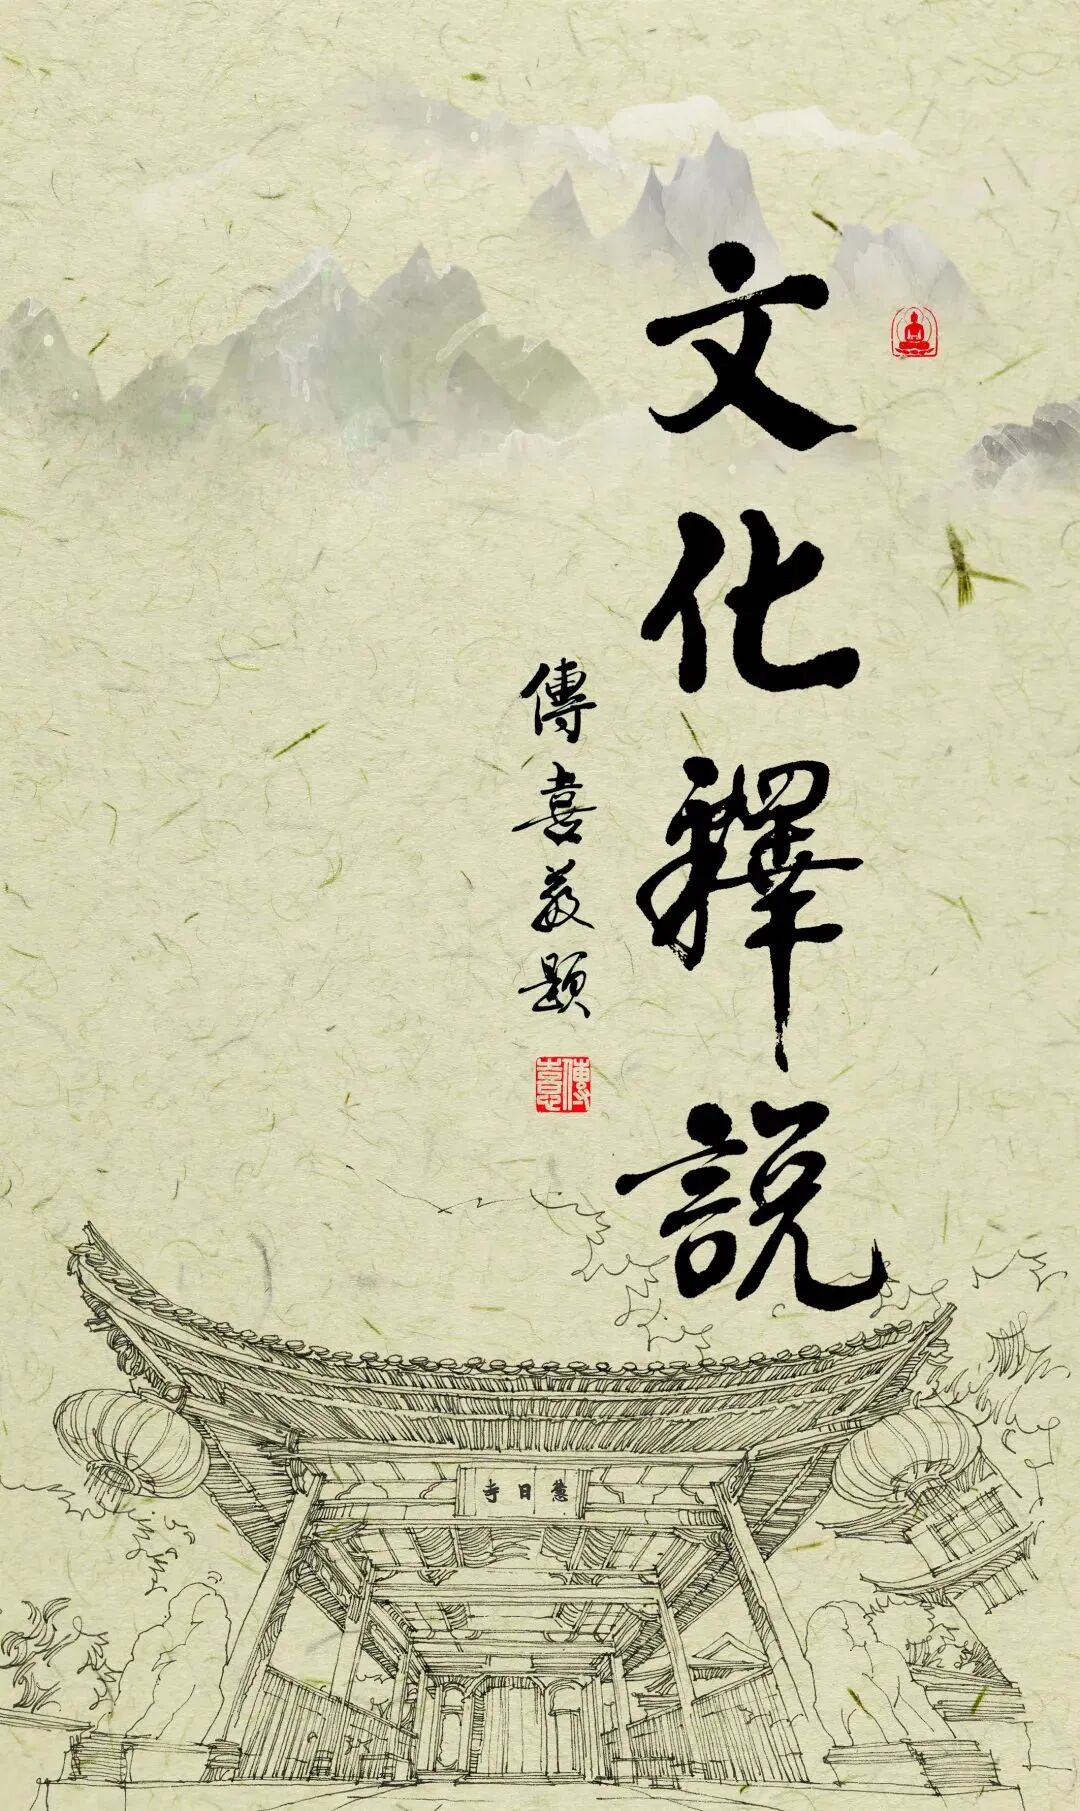 文化釋說
傳喜敬題
傳喜
慧日寺